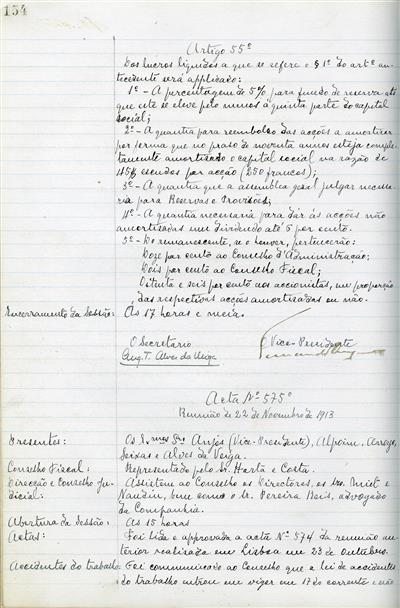 154
Artigo 55º
Dos lucros liquidos a que se refere o § 1º do artº an-
tecedente será applicado:
1º - A percentagem de 5% para fundo de reserva até
que este se eleve pelo menos á quinta parte do capital
social;
2º - A quantia para reembolso das acções a amortizar
por forma que no praso de noventa annos esteja comple-
tamente amortizado o capital social na razão de
escudos por acção (250 francos);
3º - A quantia que a assemblea geral julgar necessa-
ria para Reservas e Provisões;
4º - A quantia necessaria para dár ás acções não
amortisadas um dividendo até 5 por cento.
5º - Do remanescente, se o houver, pertencerão:
Doze por cento ao Conselho d'Administração;
Dois por cento ao Conselho Fiscal;
Oitenta e seis por cento aos accionistas, na proporção
das respectivas acções amortisadas ou não.
Encerramento da Sessão: As 17 horas e meia.
O Secretario O Vice-Presidente
Eug. T. Alves da Veiga
Acta Nº 575º
Reunião de 22 de Novembro de 1913
Presentes: Os Srs. Anjos (Vice-Presidente), Alpoim, Arroyo,
Seixas e Alves da Veiga.
Conselho Fiscal: Representado pelo Sr. Horta e Costa.
Direcção e Conselho Ju- Assistem ao Conselho os Directores, os Srs. e
dicial: bem como o Sr. Pereira Reis, advogado
da Companhia.
Abertura da Sessão: As 15 horas
Actas: Foi lida e approvada a acta Nº 574 da reunião an-
terior realizada em Lisboa em 23 de Outubro.
Accidentes do trabalho: Foi communicado ao Conselho que a lei de accidentes
do trabalho entrou em vigor em 17 do corrente e não